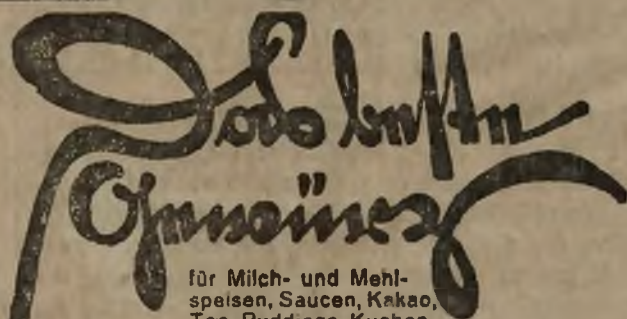 Das beste
Gewürz
für Milch- und Mehl-
speisen, Saucen, Kakao,
Tee, Puddings, Kuchen